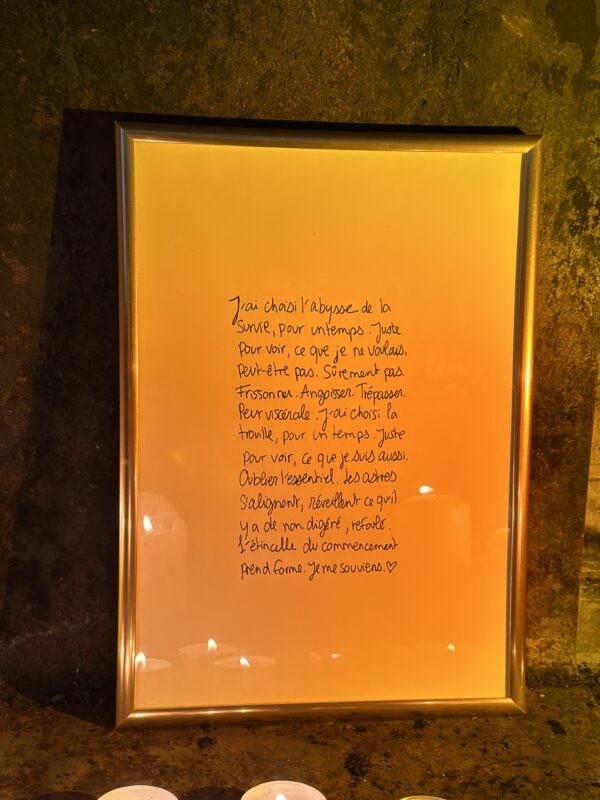 J'ai choisi l'abysse de la
survie, pour un temps. Juste
pour voir, ce que je ne voulais,
Peut-être pas. Sûrement pas.
Frissonner. Angoisser. Trépasser.
Peur viscérale. J'ai choisi la
trouille, pour un temps. Juste
pour voir, ce que je suis aussi.
Oublier l'essentiel. Les astres
s'alignent, réveillent ce qu'il
y a de non digéré, refoulé.
L'étincelle du commencement
prend forme. Je me souviens.♡